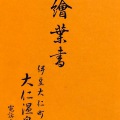 繪葉書
伊豆大仁町
大仁温泉